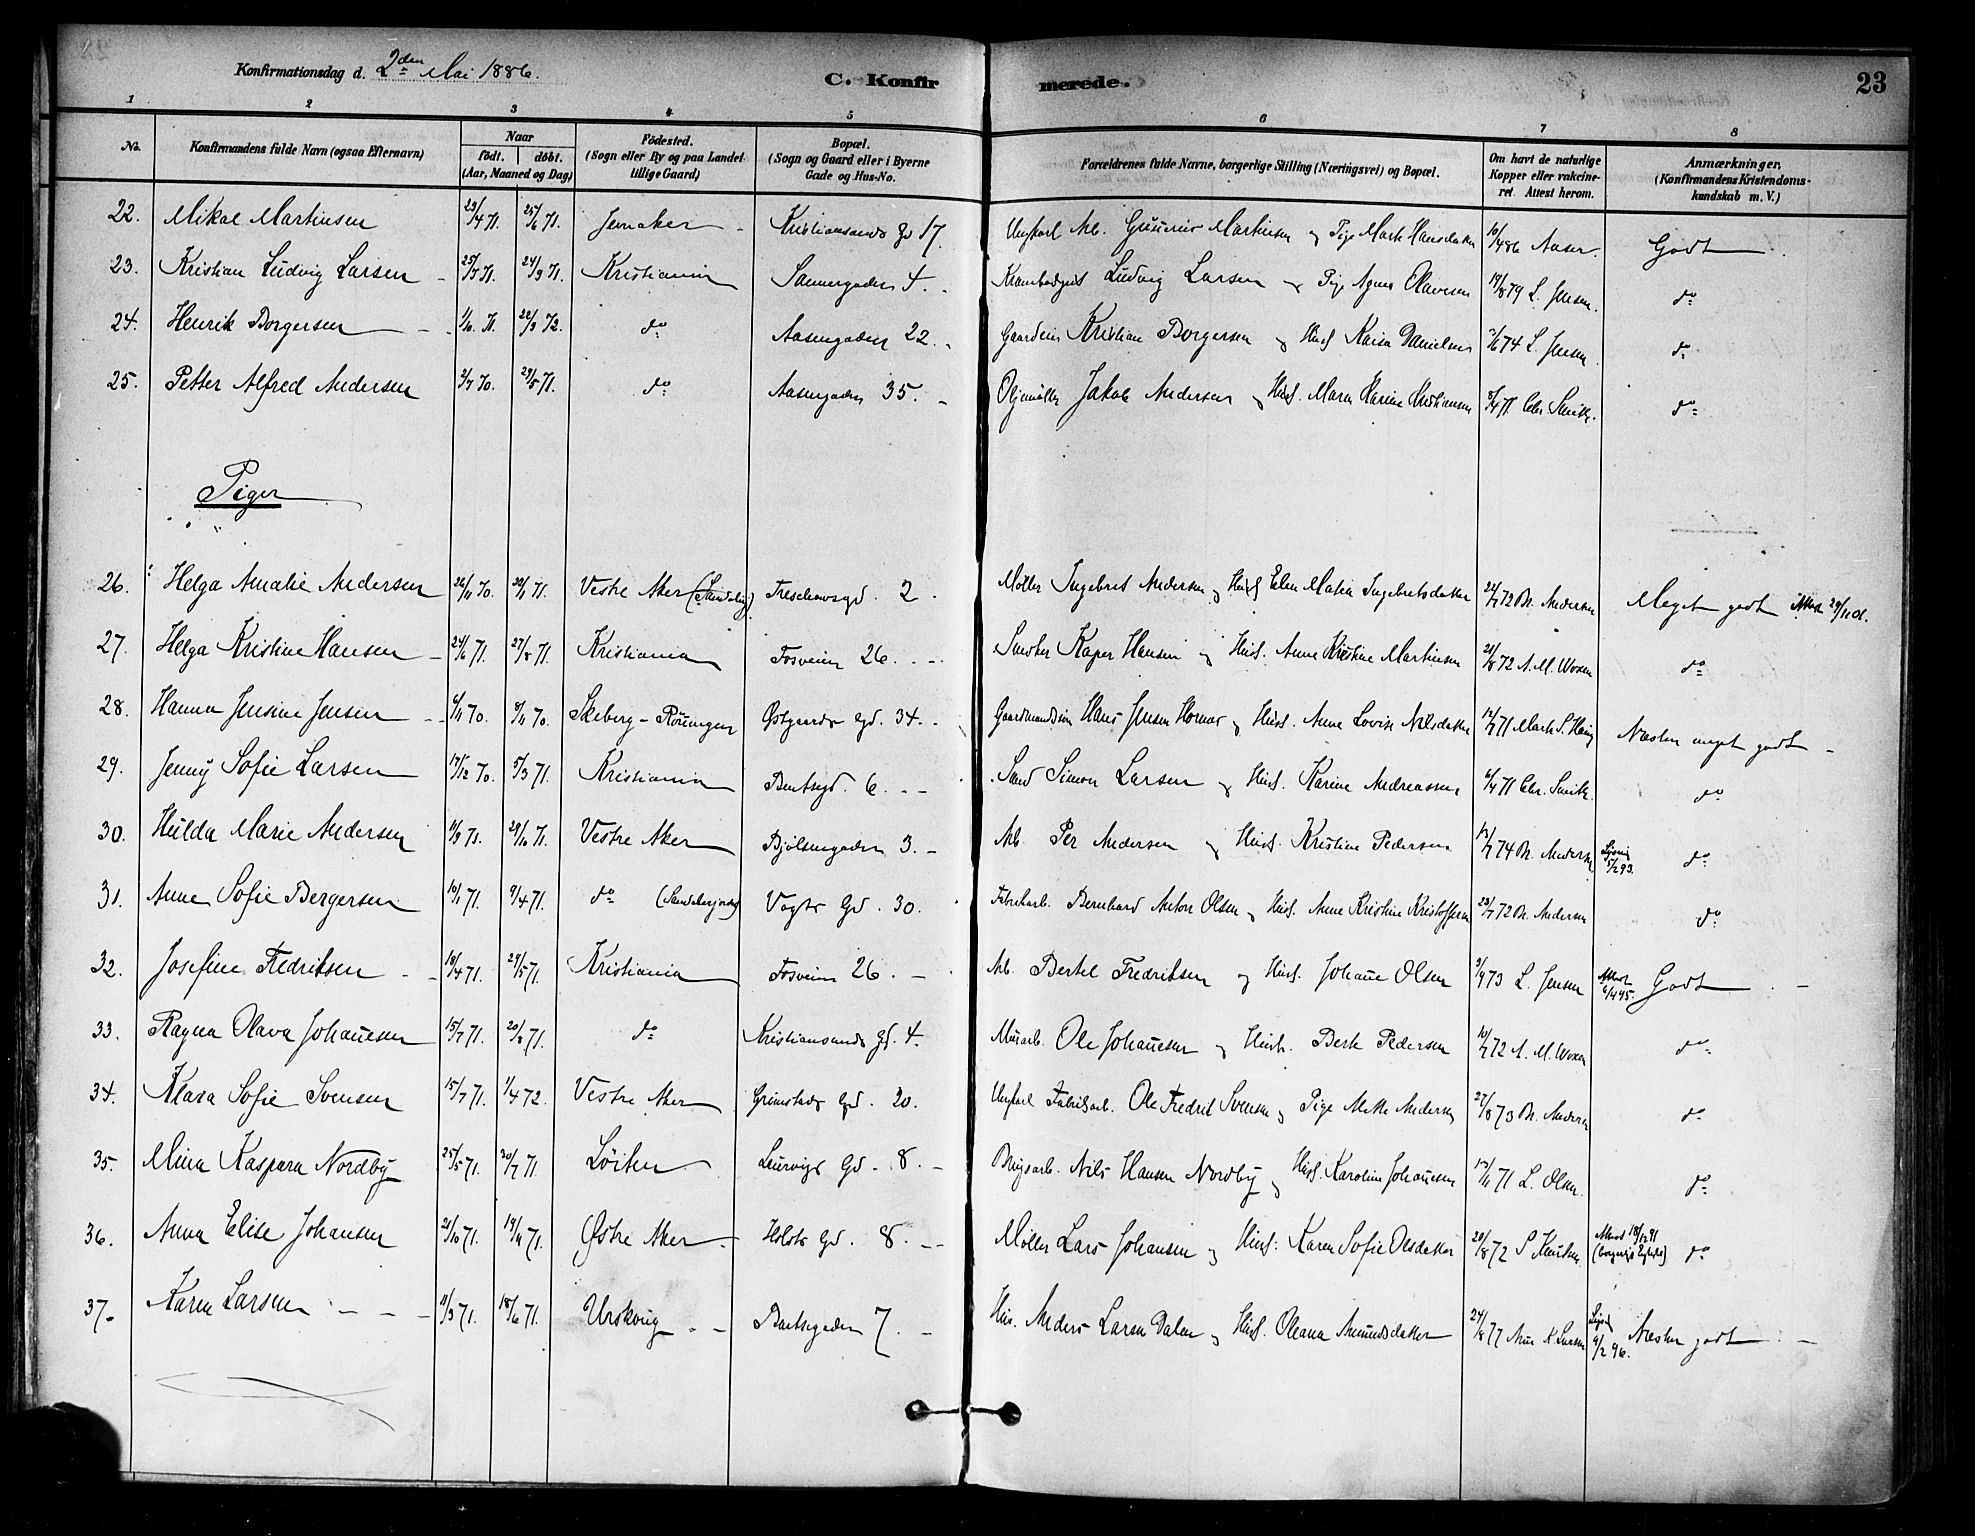 Konfirmationsdag d. 2den Mai 1886.
C. Konfirmerede.
23
1 2 3 4 5 6 7 8
No. Konfirmandens fulde Navn (ogsaa Efternavn) Naar født. døbt. (Aar, Maaned og Dag) Födested. (Sogn eller By og paa Landet tillige Gaard) Bopæl. (Sogn og Gaard eller i Byerne Gade og Hus-No. Forældrenes fulde Navne, borgerlige Stilling (Næringsvei) og Bopæl. Om havt de naturlige Kopper eller vakcineret. Attest herom. Anmærkninger. (Konfirmandens Kristendomskundskab m. V.)
22. Mikal Martinsen 23/4 71. 25/6 71. Jevnaker Kristiansands Gd 17. Ungkarl Arb. Gunerius Martinsen og Pige Marth Hansdatter 10/4 86 Aaser. Godt
23. Kristian Ludvig Larsen 25/7 71. 24/9 71. Kristiania Sannergaden 4. Ludvig Larsen og Pige Agnes Olavesen 19/8 79 L. Jensen. do
24. Henrik Borgersen 1/10. 71. 22/3 72. do Aasengaden 22. Kristian Borgersen og Hust Kaisa Danielsen 74 L. Jensen. do
25. Petter Alfred Andersen 2/7 70. 29/5 71. do Aasengaden 35. Oljemöller Jakob Andersen og Hust. Maren Karine Kristiansen 5/4 71 Chr. Smith. do
Piger
26. Helga Amalie Andersen 26/11 70. 22/1 71. Vestre Aker Treschowsgd. 2. Møller Ingebret Andersen og Hust Elen Matea Ingebretsdatter 24/7 72 Br. Andersen Meget godt Attest 29/11 01.
27. Helga Kristine Hansen 24/6 71. 27/8 71. Kristiania Fosveien 26. Snedker Kasper Hansen og Hust. Anne Kristine Martinsen 21/8 72 A. M. Woxen do
28. Hanna Jensine Jensen 6/11 70. 70. Skeberg - Østgaards Gd. 34. Hans Jensen og Hust. Anne Lovise Nilsdatter 12/7 71 Næsten meget godt
29. Jenny Sofie Larsen 17/12 70. 5/3 71. Kristiania Bentsegd. 6. Simon Larsen og Hust. Karine Andreassen 6/4 71 Chr. Smith. do
30. Hulda Marie Andersen 71. 29/10 71. Vestre Aker Bjølsengaden 3. Arb. Per Andersen og Hust. Kristine Pedersen 13/7 74 Br. Andersen 5/2 93. do
31. Anne Sofie Bergersen 10/1 71. 9/4 71. do Vogts Gd. 30. Fabrikarb. Bernhard Anton Olsen og Hust. Anne Kristine Kristoffersen 23/7 72 Br. Andersen do
32. Josefine Fredriksen 18/4 71. 29/5 71. Kristiania Fosveien 26. Arb. Bertel Fredriksen og Hust. Johanne Olsen 3/9 73 L. Jensen Attest 6/4 45. Godt
33. Ragna Olava Johannesen 15/7 71. 71. do Kristiansands Gd. 4. Murarb. Ole Johannesen og Hust. Berte Pedersen 10/7 72 A. M. Woxen do
34. Klara Sofie Svensen 15/7 71. 1/4 72. Vestre Aker Grimstads Gd. 20. Ungkarl Fabrikarb. Ole Fredrik Svensen og Pige Mette Andersen 27/8 73 Br. Andersen do
35. Mina Kaspara Nordby 25/5 71. 30/7 71 Löiten Leirvigs Gd. 8. Brugsarb. Nils Hansen Nordby og Hust. Karoline Johannesen 17/11 71 L. Olsen. do
36. Anna Elise Johansen 21/10 71. 71. Østre Aker Holsts Gd. 8. Møller Lars Johansen og Hust. Karen Sofie Olsdatter 20/8 72 S Knutsen. Attest 18/12 91 do
37. Karen Larsen 11/3 71. 18/6 71. Urskoug Bentsegaden 7. Hus. Anders Larsen Dalen og Hust. Oleana Amundsdatter 24/8 77 Ane K Larsen 9/2 96. Næsten godt